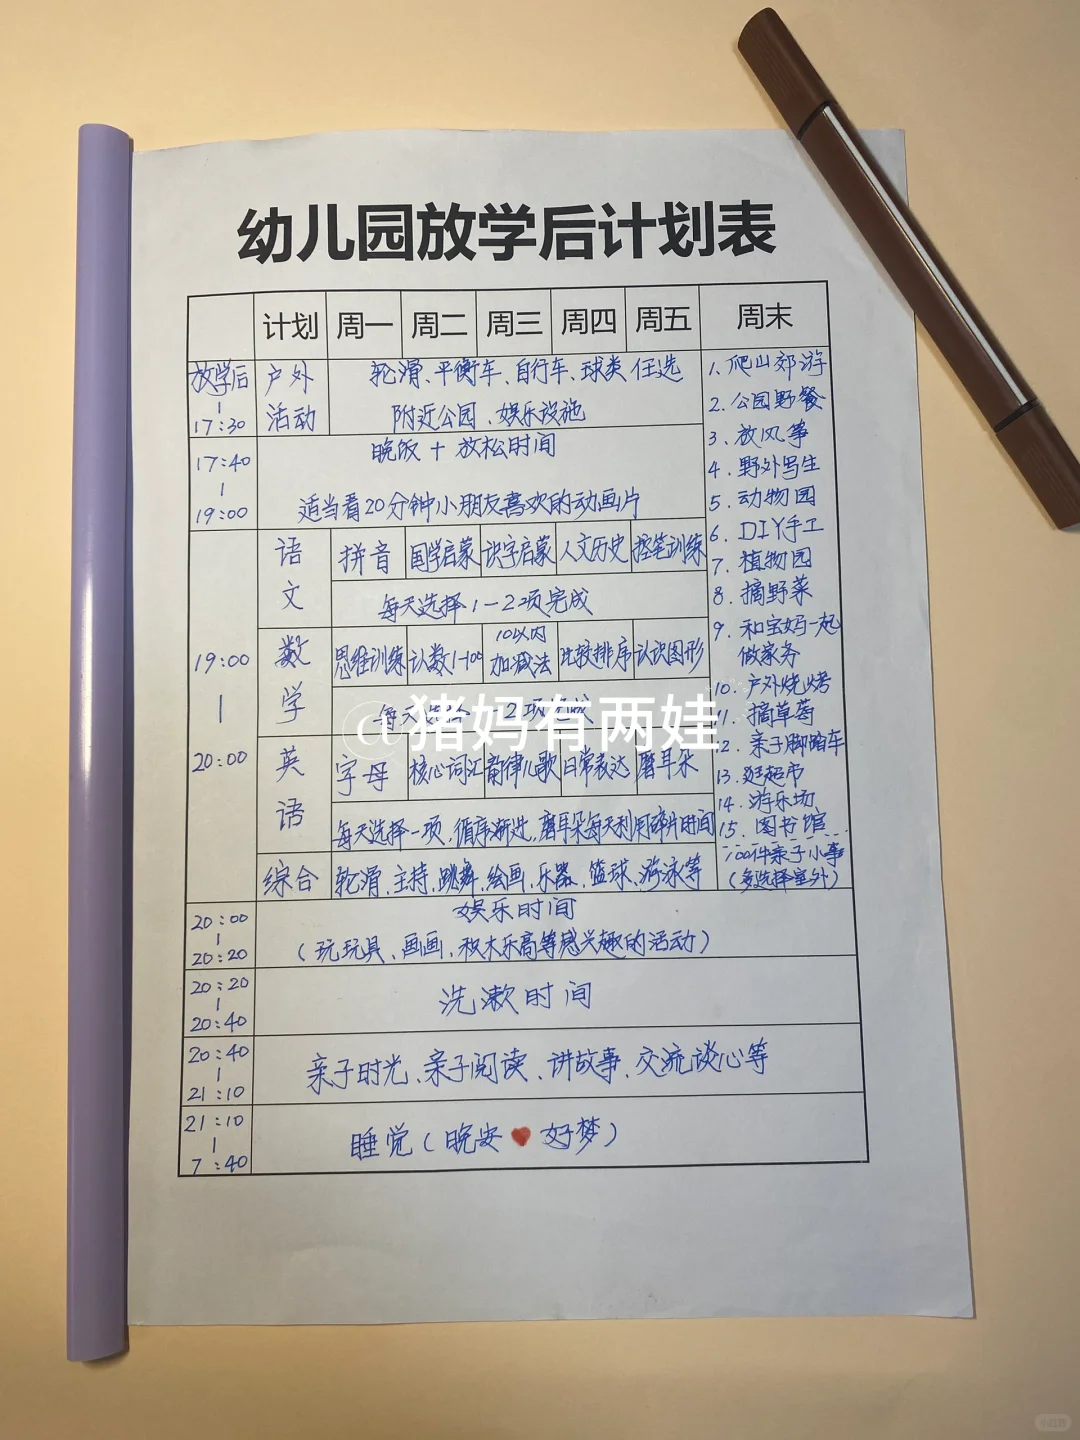 幼儿园放学后计划表
计划 周一 周二 周三 周四 周五 周末
放学后 | 17:30
户外活动
轮滑、平衡车、自行车、球类任选
附近公园、娱乐设施
17:40 | 19:00
晚饭 + 放松时间
适当看20分钟小朋友喜欢的动画片
19:00 | 20:00
语文
拼音 国学启蒙 识字启蒙 人文历史 控笔训练
每天选择1-2项完成
数学
思维训练 认数1-100 10以内加减法 比较排序 认识图形
每天
2项
英语
字母 核心词汇 韵律儿歌 日常表达 磨耳朵
每天选择一项,循序渐进,磨耳朵每天利用碎片时间
综合
轮滑、主持、跳舞、绘画、乐器、篮球、游泳等
1.爬山郊游
2.公园野餐
3.放风筝
4.野外写生
5.动物园
6.DIY手工
7.植物园
8.摘野菜
9.和宝妈一起
做家务
10.户外烧烤
11.摘草莓
12.亲子脚踏车
13.逛超市
14.游乐场
15.图书馆......
100件亲子小事
(多选择室外)
20:00 | 20:20
娱乐时间
(玩玩具、画画、积木乐高等感兴趣的活动)
20:20 | 20:40
洗漱时间
20:40 | 21:10
亲子时光、亲子阅读、讲故事、交流谈心等
21:10 | 7:40
睡觉(晚安❤好梦)
@猪妈有两娃